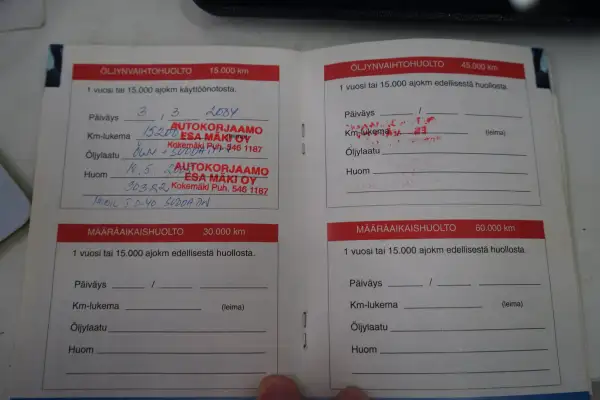 ÖLJYNVAIHTOHUOLTO 15.000 km
1 vuosi tai 15.000 ajokm käyttöönotosta.
Päiväys 3 . 3 2004
Km-lukema 15200
AUTOKORJAAMO
ESA MÄKI OY
Kokemäki Puh. 546 1187
Öljylaatu
Huom
AUTOKORJAAMO
ESA MÄKI OY
Kokemäki Puh. 546 1187
MÄÄRÄAIKAISHUOLTO 30.000 km
1 vuosi tai 15.000 ajokm edellisestä huollosta.
Päiväys /
Km-lukema (leima)
Öljylaatu
Huom
ÖLJYNVAIHTOHUOLTO 45.000 km
1 vuosi tai 15.000 ajokm edellisestä huollosta.
Päiväys /
Km-lukema (leima)
Öljylaatu
Huom
MÄÄRÄAIKAISHUOLTO 60.000 km
1 vuosi tai 15.000 ajokm edellisestä huollosta.
Päiväys /
Km-lukema (leima)
Öljylaatu
Huom